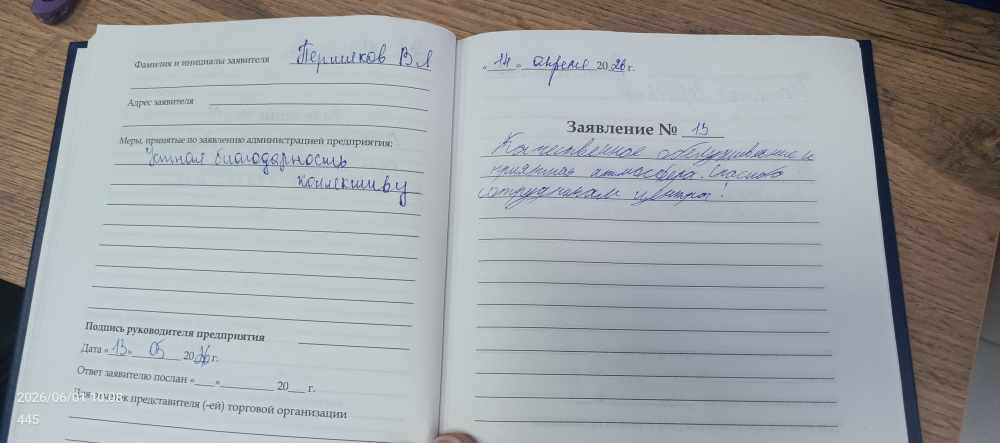 Фамилия и инициалы заявителя Першиков В Л
Адрес заявителя
Меры, принятые по заявлению администрацией предприятия:
Устная благодарность
коллективу
Подпись руководителя предприятия
Дата « 13 » 05 20 26 г.
Ответ заявителю послан « » 20 г.
представителя (-ей) торговой организации
2026/06/01 10:08
445
« 14 » апреля 20 26 г.
Заявление № 13
Качественное обслуживание и
приятная атмосфера. Спасибо
сотрудникам центра!